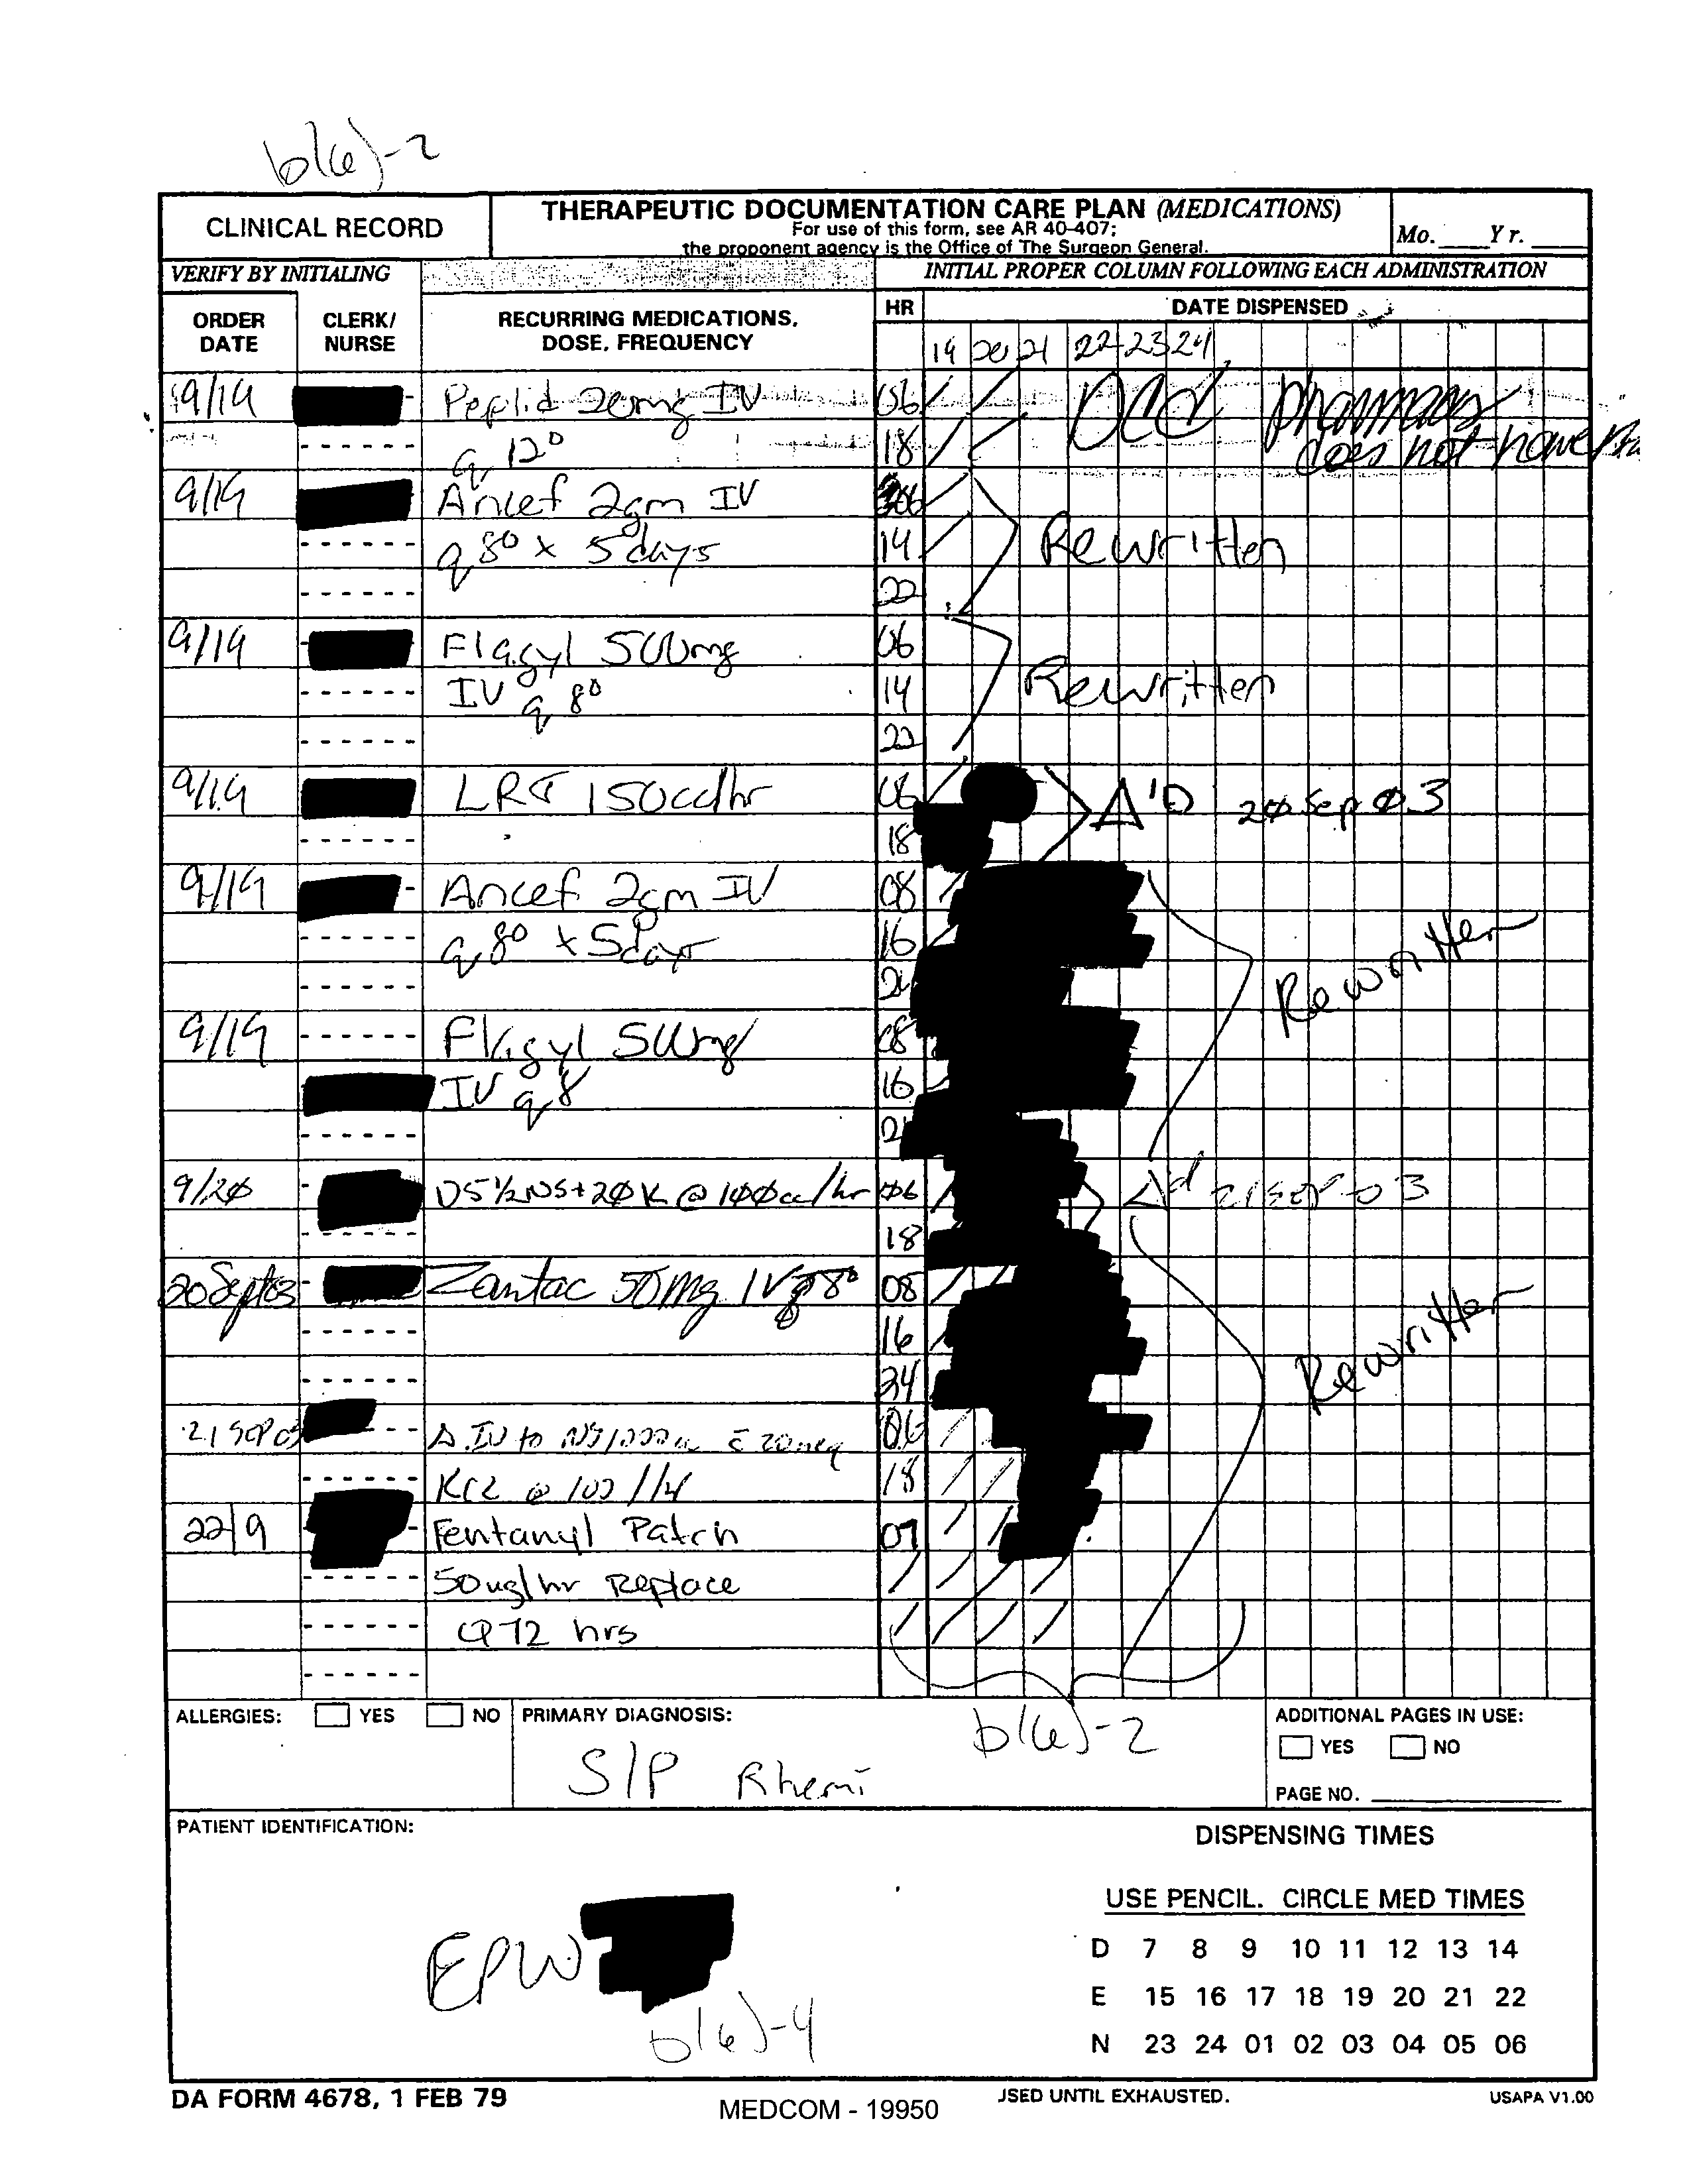 b(6)-2
CLINICAL RECORD
THERAPEUTIC DOCUMENTATION CARE PLAN (MEDICATIONS)
For use of this form, see AR 40-407;
the proponent agency is the Office of The Surgeon General.
Mo. ____ Yr. ____
VERIFY BY INITIALING
INITIAL PROPER COLUMN FOLLOWING EACH ADMINISTRATION
ORDER DATE
CLERK/ NURSE
RECURRING MEDICATIONS, DOSE, FREQUENCY
HR
DATE DISPENSED
19 20 21 22 23 24
9/19 Peplid 20mg IV 06 DCd pharmacy
q 12° 18 does not have
9/19 Ancef 2gm IV 06
q 8° x 5 days 14 Rewritten
22
9/19 Flagyl 500mg 06
IV q 8° 14 Rewritten
22
9/19 LR @ 150cc/hr 06 Δ'D 20 Sep 03
18
9/19 Ancef 2gm IV 08
q 8° x 5 days 16 Rewritten
24
9/19 Flagyl 500mg 08
IV q 8 16
24
9/20 D5 1/2NS + 20K @ 100cc/hr 06 Δ'd 21 SEP 03
18
20 Sept 03 Zantac 50mg IV q 8° 08
16 Rewritten
24
21 SEP 03 Δ IV to NS/1000cc c̄ 20meq 06
KCL @ 100/H 18
22/9 Fentanyl Patch 07
50ug/hr Replace
Q72 hrs
ALLERGIES: YES NO
PRIMARY DIAGNOSIS:
S/P
b(6)-2
ADDITIONAL PAGES IN USE:
YES NO
PAGE NO. ____
PATIENT IDENTIFICATION:
EPW
b(6)-4
DISPENSING TIMES
USE PENCIL. CIRCLE MED TIMES
D 7 8 9 10 11 12 13 14
E 15 16 17 18 19 20 21 22
N 23 24 01 02 03 04 05 06
DA FORM 4678, 1 FEB 79
MEDCOM - 19950
USED UNTIL EXHAUSTED.
USAPA V1.00